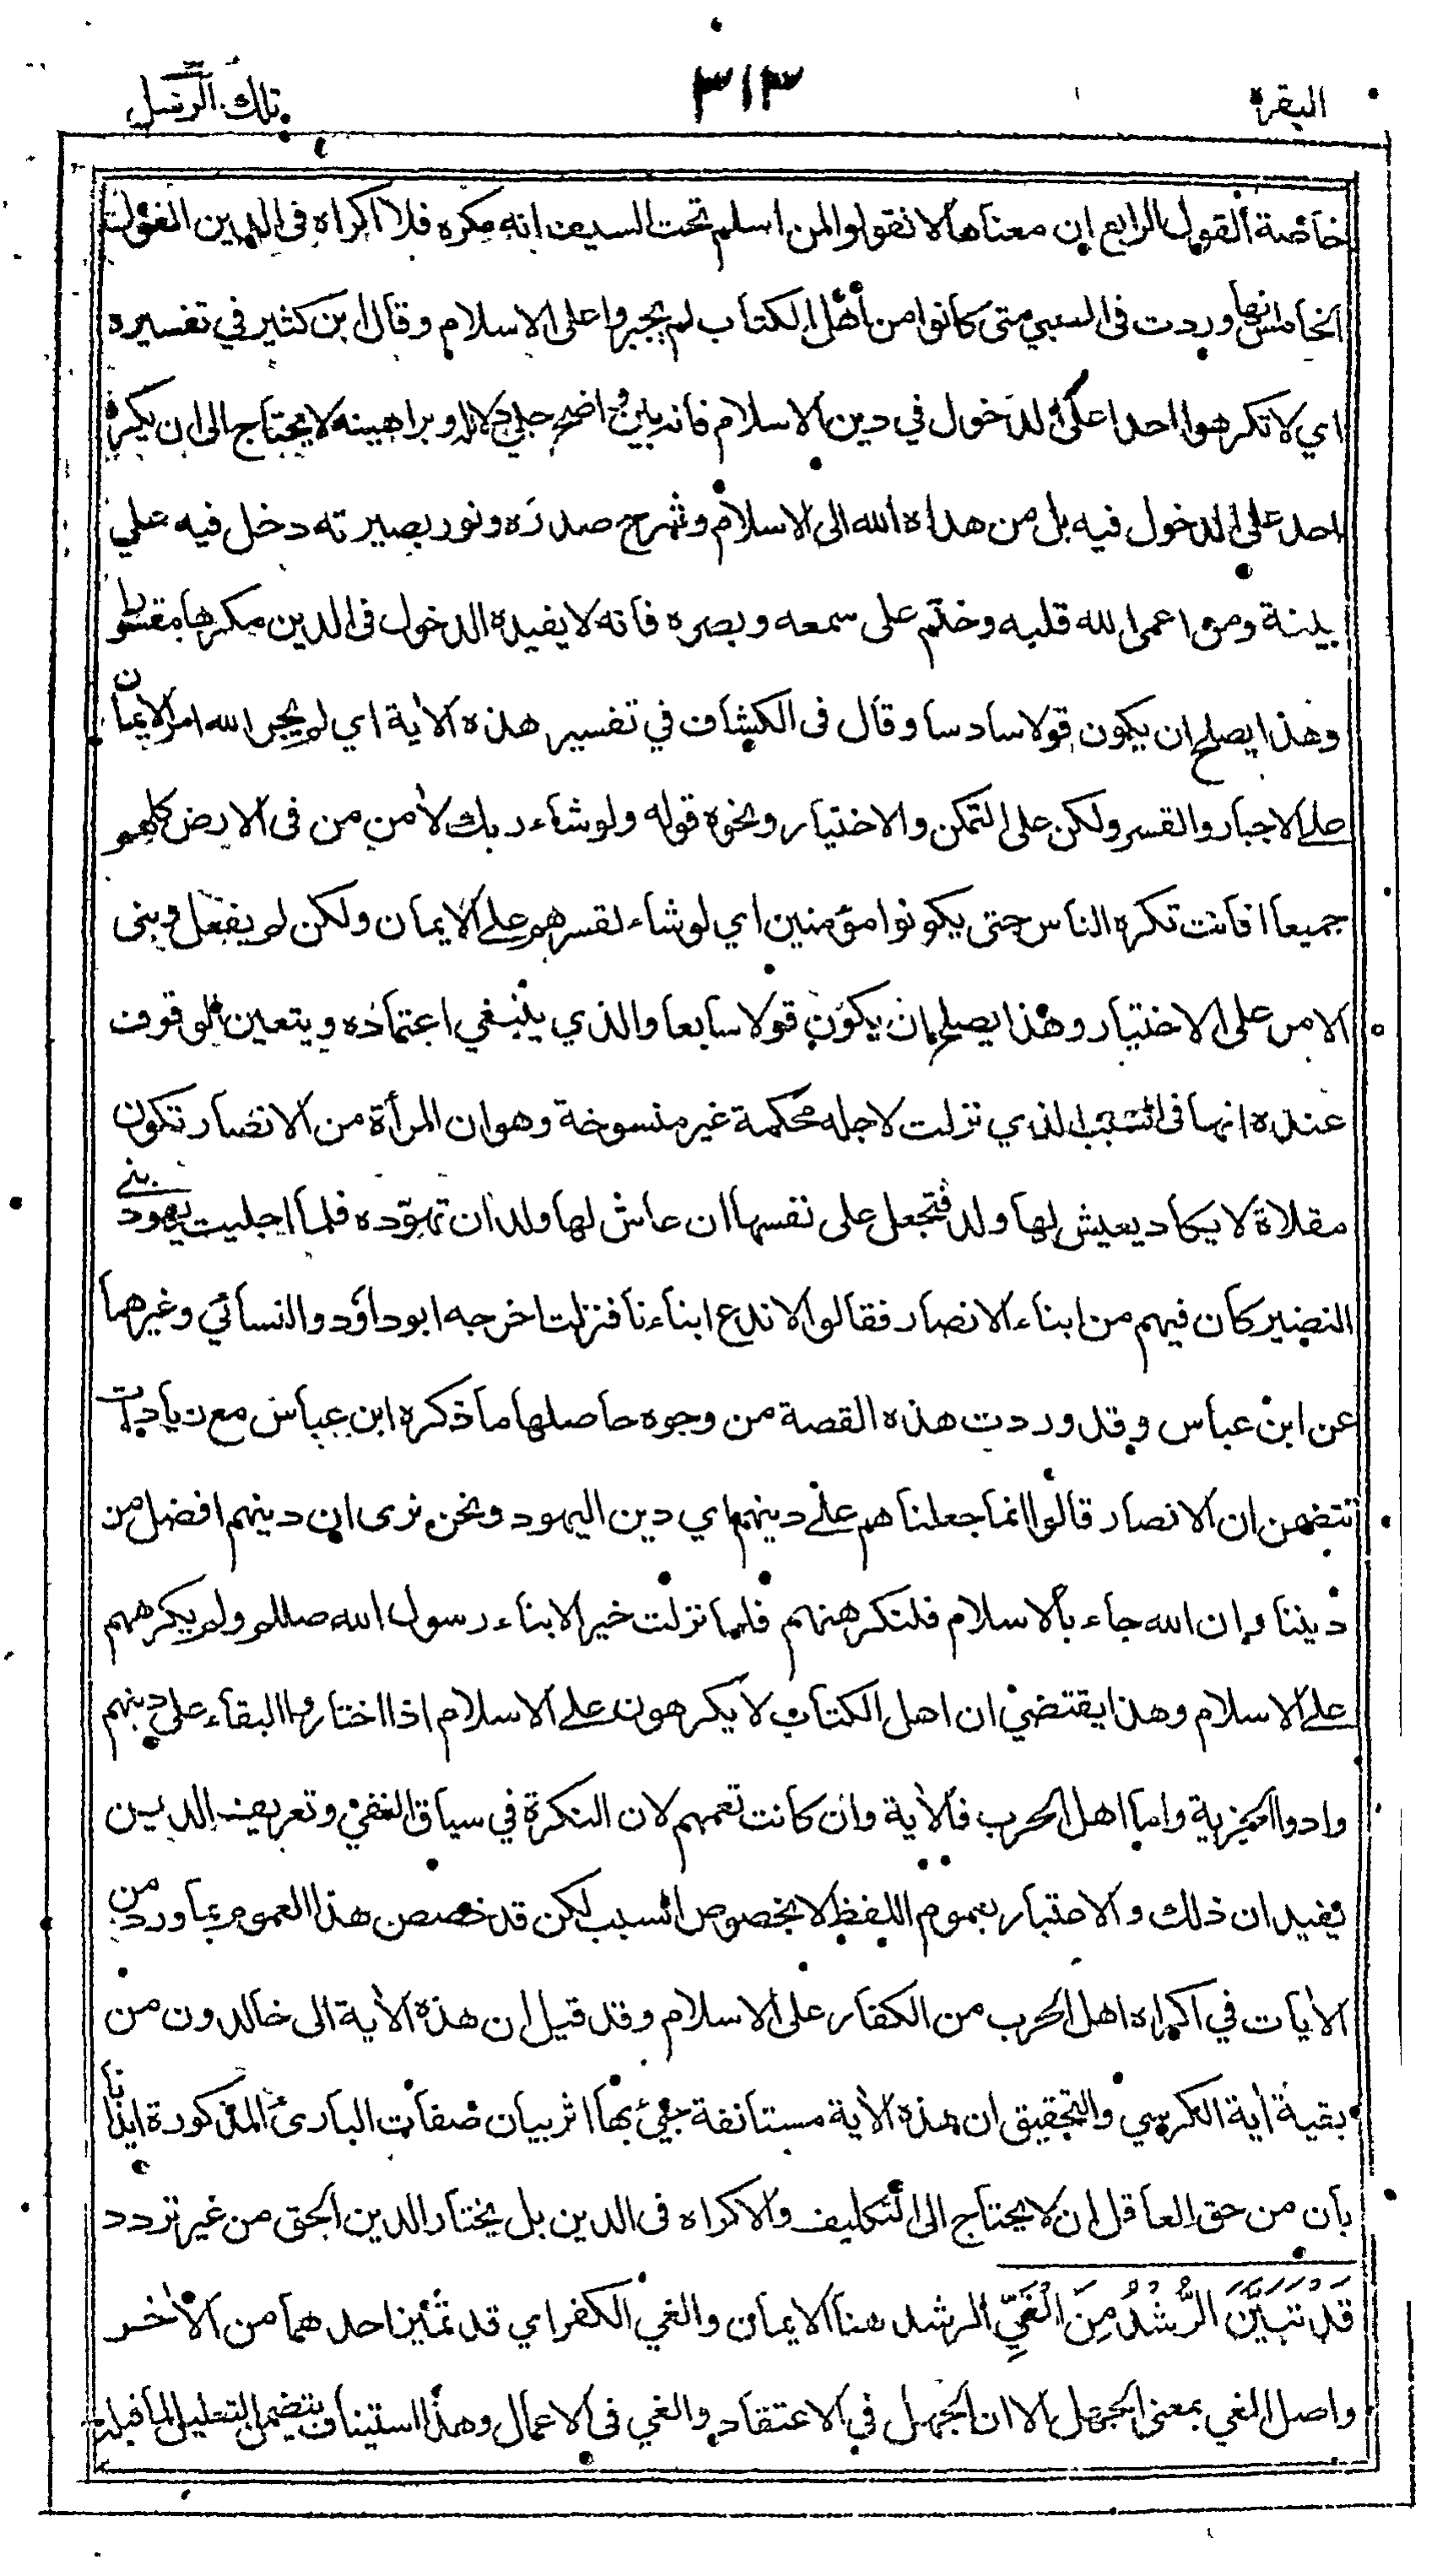 البقرة ٣١٣ تلك الرسل
خاصة القول الرابع ان معناها لا تقولوا لمن اسلم تحت السيف انه مكره فلا اكراه في الدين القول
الخامس انها وردت في السبي متى كانوا من أهل الكتاب لم يجبروا على الاسلام وقال ابن كثير في تفسيره
اي لا تكرهوا احدا على الدخول في دين الاسلام فانه بين واضح جلي دلائله وبراهينه لا يحتاج الى ان يكره
احد على الدخول فيه بل من هداه الله الى الاسلام وشرح صدره ونور بصيرته دخل فيه على
بينة ومن اعمى الله قلبه وختم على سمعه وبصره فانه لا يفيده الدخول في الدين مكرها مقسورا
وهذا يصلح ان يكون قولا سادسا وقال في الكشاف في تفسير هذه الآية اي لم يجر الله امر الايمان
على الاجبار والقسر ولكن على التمكن والاختيار ونحوه قوله ولو شاء ربك لآمن من في الارض كلهم
جميعا افانت تكره الناس حتى يكونوا مؤمنين اي لو شاء لقسرهم على الايمان ولكن لم يفعل وبنى
الامر على الاختيار وهذا يصلح ان يكون قولا سابعا والذي ينبغي اعتماده ويتعين الوقوف
عنده انها في السبب الذي نزلت لاجله محكمة غير منسوخة وهو ان المرأة من الانصار تكون
مقلاة لا يكاد يعيش لها ولد فتجعل على نفسها ان عاش لها ولد ان تهوّده فلما اجليت يهود بني
النضير كان فيهم من ابناء الانصار فقالوا لا ندع ابناءنا فنزلت اخرجه ابو داؤد والنسائي وغيرهما
عن ابن عباس وقد وردت هذه القصة من وجوه حاصلها ما ذكره ابن عباس مع زيادات
تتضمن ان الانصار قالوا انما جعلناهم على دينهم اي دين اليهود ونحن نرى ان دينهم افضل من
ديننا وان الله جاء بالاسلام فلنكرهنهم فلما نزلت خير الابناء رسول الله صللم ولم يكرههم
على الاسلام وهذا يقتضي ان اهل الكتاب لا يكرهون على الاسلام اذا اختاروا البقاء على دينهم
وادوا الجزية واما اهل الحرب فالآية وان كانت تعمهم لان النكرة في سياق النفي وتعريف الدين
يفيدان ذلك والاعتبار بعموم اللفظ لا بخصوص السبب لكن قد خصص هذا العموم بما ورد من
الآيات في اكراه اهل الحرب من الكفار على الاسلام وقد قيل ان هذه الآية الى خالدون من
بقية آية الكرسي والتحقيق ان هذه الآية مستانفة جيئ بها اثر بيان صفات البارئ المذكورة ايذانا
بان من حق العاقل ان لا يحتاج الى التكليف والاكراه في الدين بل يختار الدين الحق من غير تردد
قَدْ تَبَيَّنَ الرُّشْدُ مِنَ الْغَيِّ الرشد هنا الايمان والغي الكفر اي قد تميز احدهما من الآخر
واصل الغي بمعنى الجهل الا ان الجهل في الاعتقاد والغي في الاعمال وهذا استيناف يتضمن التعليل لما قبله